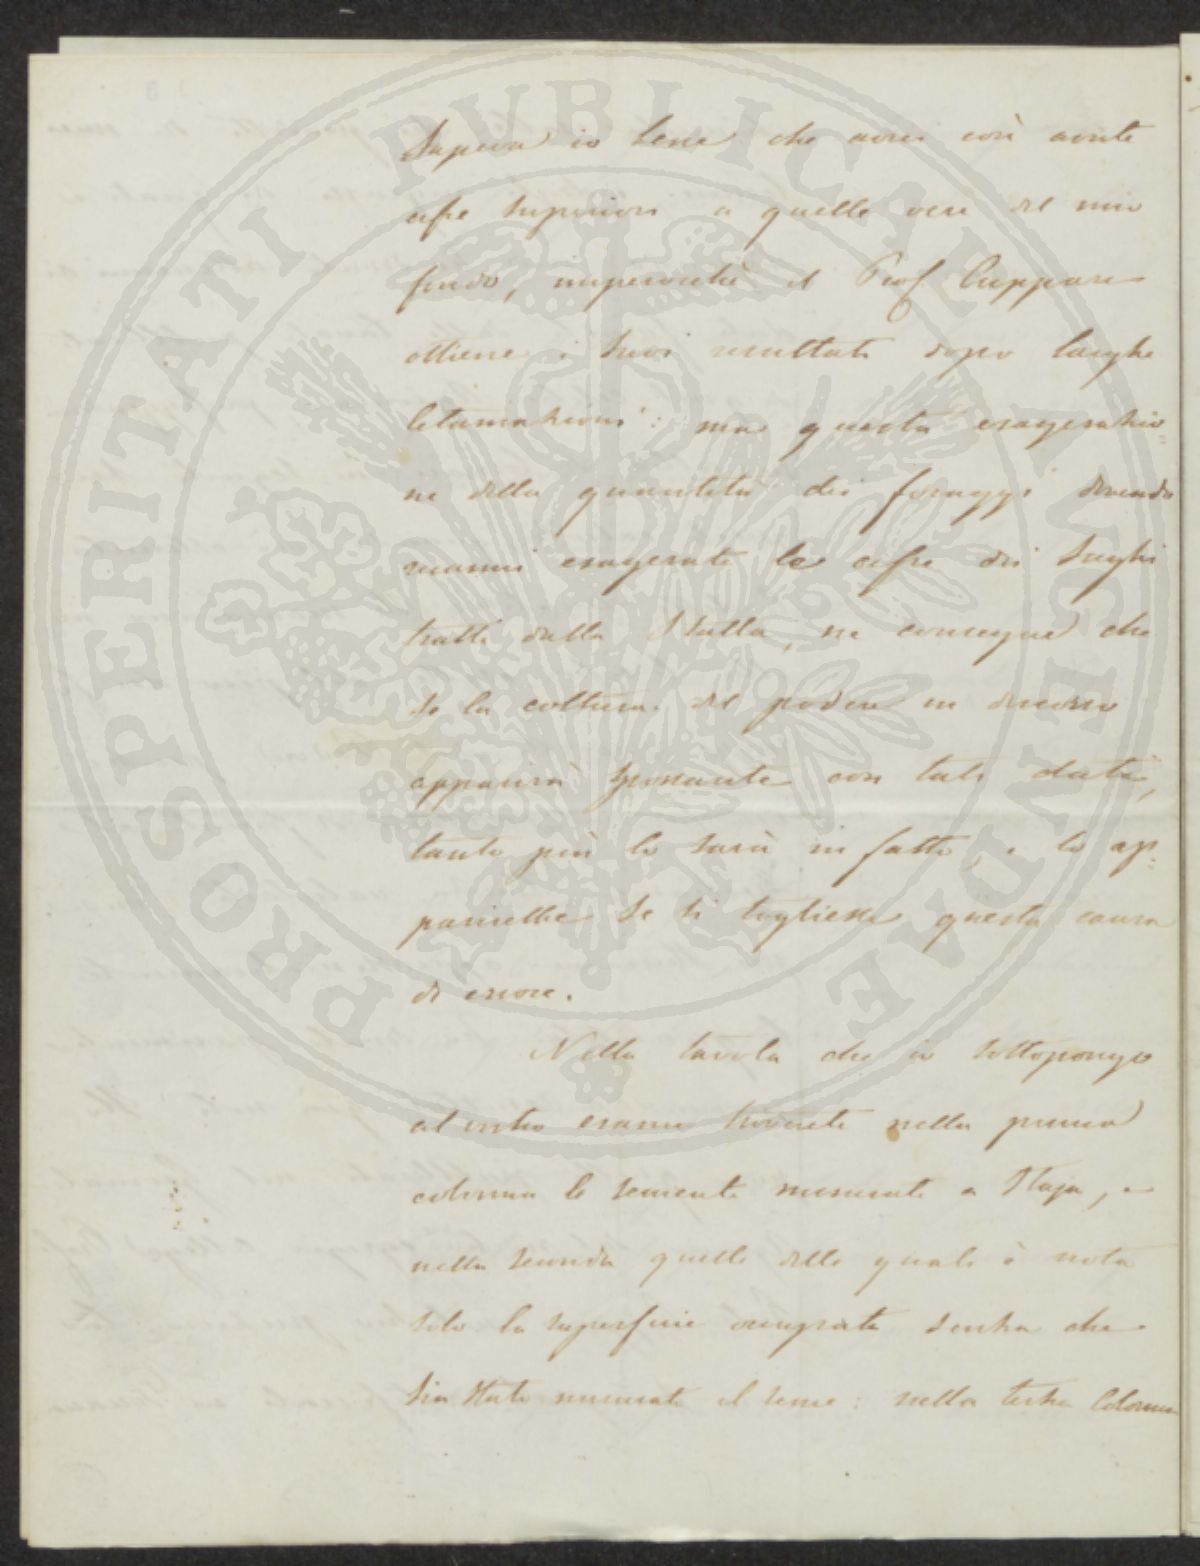 Sapeva io bene che avrei così avute
cifre superiori a quelle vere del mio
fondo, imperocchè il Prof Cuppari
ottiene i suoi resultati dopo larghe
letamazioni: ma questa esagerazio=
ne della quantità dei foraggi
esagerate le cifre dei Sughi
tratti dalla Stalla, ne consegue che
se la coltura del podere in discorso
apparirà spossante con tali dati,
tanto più lo sarà in fatto, e lo ap=
parirebbe se si togliesse questa causa
di errore.
Nella tavola che io sottopongo
al vostro esame troverete nella prima
colonna le sementi misurate a Staja, e
nella seconda quelle delle quali è nota
solo la superficie occupata senza che
sia stato misurato il seme: nella terza Colonna
PROSPERITATI PUBLICAE AUGENDAE